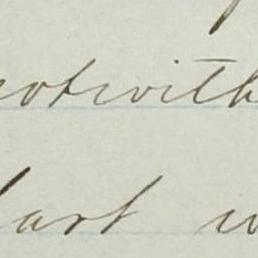 notwith
last w